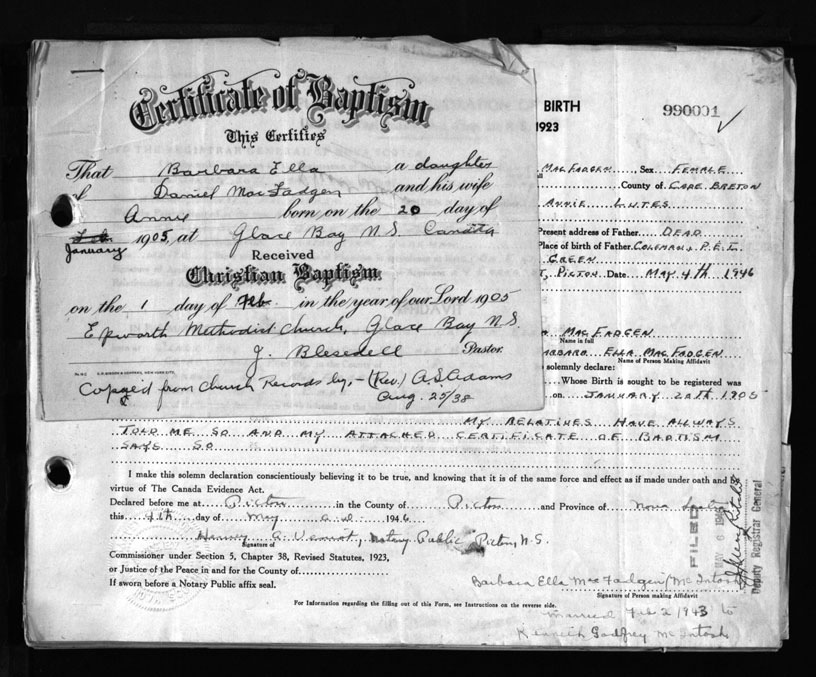 Certificate of Baptism
This Certifies
That Barbara Ella a daughter
of Daniel MacFadgen and his wife
Annie born on the 20 day of
Feb. January 1905, at Glace Bay N.S. Canada
Received
Christian Baptism
on the 1 day of Feb. in the year of our Lord 1905
Epworth Methodist Church, Glace Bay N.S.
J. Blesedell Pastor.
Copyed from Church Records by,- (Rev) A.S. Adams
Aug. 25/38
BIRTH
990001
1923
MacFadgen, Sex Female
County of Cape Breton
Annie Lutes
Present address of Father. Dead
Place of birth of Father. Colemans, P.E.I.
Green
Picton Date May 4th 1946
MacFadgen
Name in full
Ella MacFadgen
Name of Person Making Affidavit
solemnly declare:
Whose Birth is sought to be registered was
on January 20th 1905
My relatives have allways
told me so and my attached certificate of Babtism
says so
I make this solemn declaration conscientiously believing it to be true, and knowing that it is of the same force and effect as if made under oath and by
virtue of The Canada Evidence Act.
Declared before me at Picton in the County of Picton and Province of Nova Scotia
this 4th day of May a.d. 1946
Notary Public Picton, N.S.
Signature of
Commissioner under Section 5, Chapter 38, Revised Statutes, 1923,
or Justice of the Peace in and for the County of
If sworn before a Notary Public affix seal.
FILED
MAY 6 1946
Deputy Registrar General
Barbara Ella MacFadgen/McIntosh
Signature of Person making Affidavit
For Information regarding the filling out of this Form, see Instructions on the reverse side.
married Feb 2 1943 to
Kenneth Godfrey McIntosh